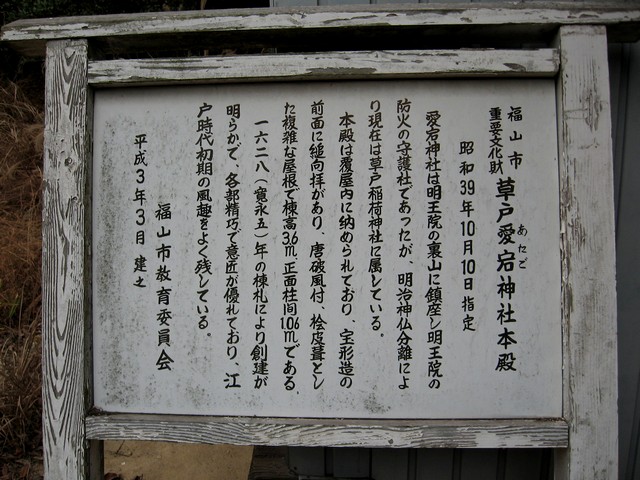 福山市
重要文化財
草戸愛宕神社本殿
あたご
昭和39年10月10日指定
愛宕神社は明王院の裏山に鎮座し明王院の
防火の守護社であったが、明治神仏分離によ
り現在は草戸稲荷神社に属している。
本殿は覆屋内に納められており、宝形造の
前面に縋向拝があり、唐破風付、桧皮葺とし
た複雑な屋根で棟高3.6m、正面柱間1.06mである。
一六二八(寛永五)年の棟札により創建が
明らかで、各部精巧で意匠が優れており、江
戸時代初期の風趣をよく残している。
福山市教育委員会
平成3年3月 建之